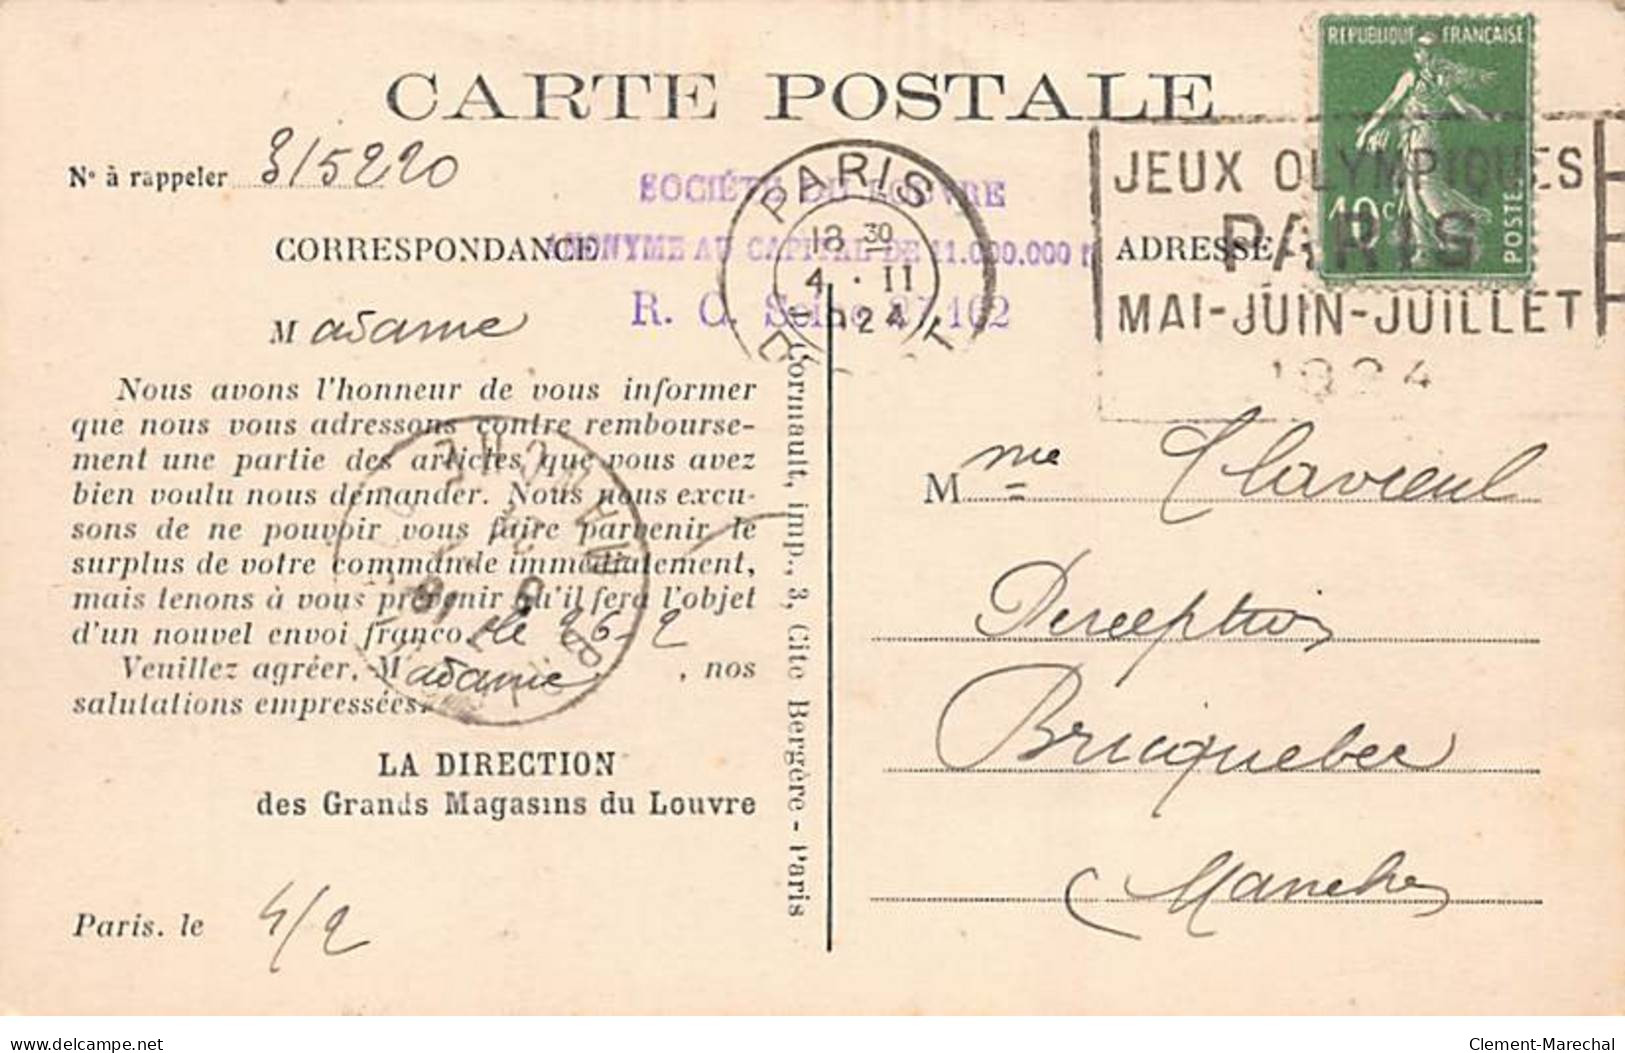 CARTE POSTALE
REPUBLIQUE FRANÇAISE
10c
POSTES
JEUX OLYMPIQUES
PARIS
MAI-JUIN-JUILLET
1924
PARIS
18 30
4 · II
24
N° à rappeler 315220
SOCIÉTÉ DU LOUVRE
ANONYME AU CAPITAL DE 11.000.000 f
R. C. Seine 27.162
CORRESPONDANCE
ADRESSE
Madame
Nous avons l'honneur de vous informer
que nous vous adressons contre rembourse-
ment une partie des articles que vous avez
bien voulu nous demander. Nous nous excu-
sons de ne pouvoir vous faire parvenir le
surplus de votre commande immédiatement,
mais tenons à vous prévenir qu'il fera l'objet
d'un nouvel envoi franco. le 26-2
Veuillez agréer, Madame, nos
salutations empressées.
LA DIRECTION
des Grands Magasins du Louvre
Paris. le 4/2
Cormault, imp., 3, Cité Bergère - Paris
Mme Clavreul
Perception
Bricquebec
Manche
delcampe.net
Clement-Marechal